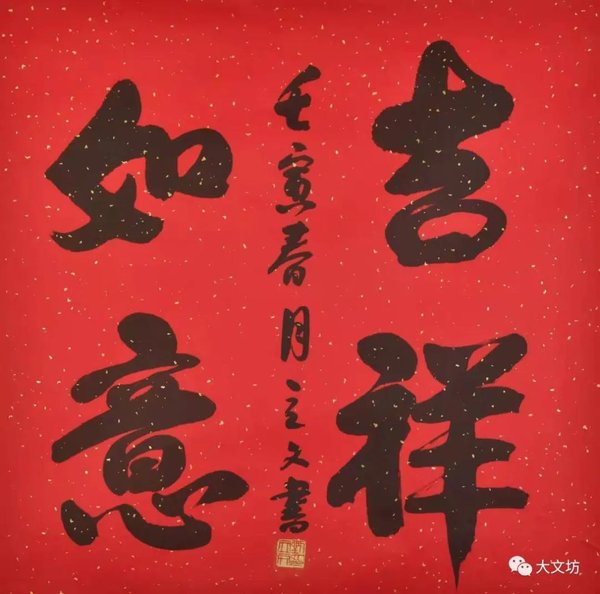 吉祥
如意
壬寅春月立文書
大文坊